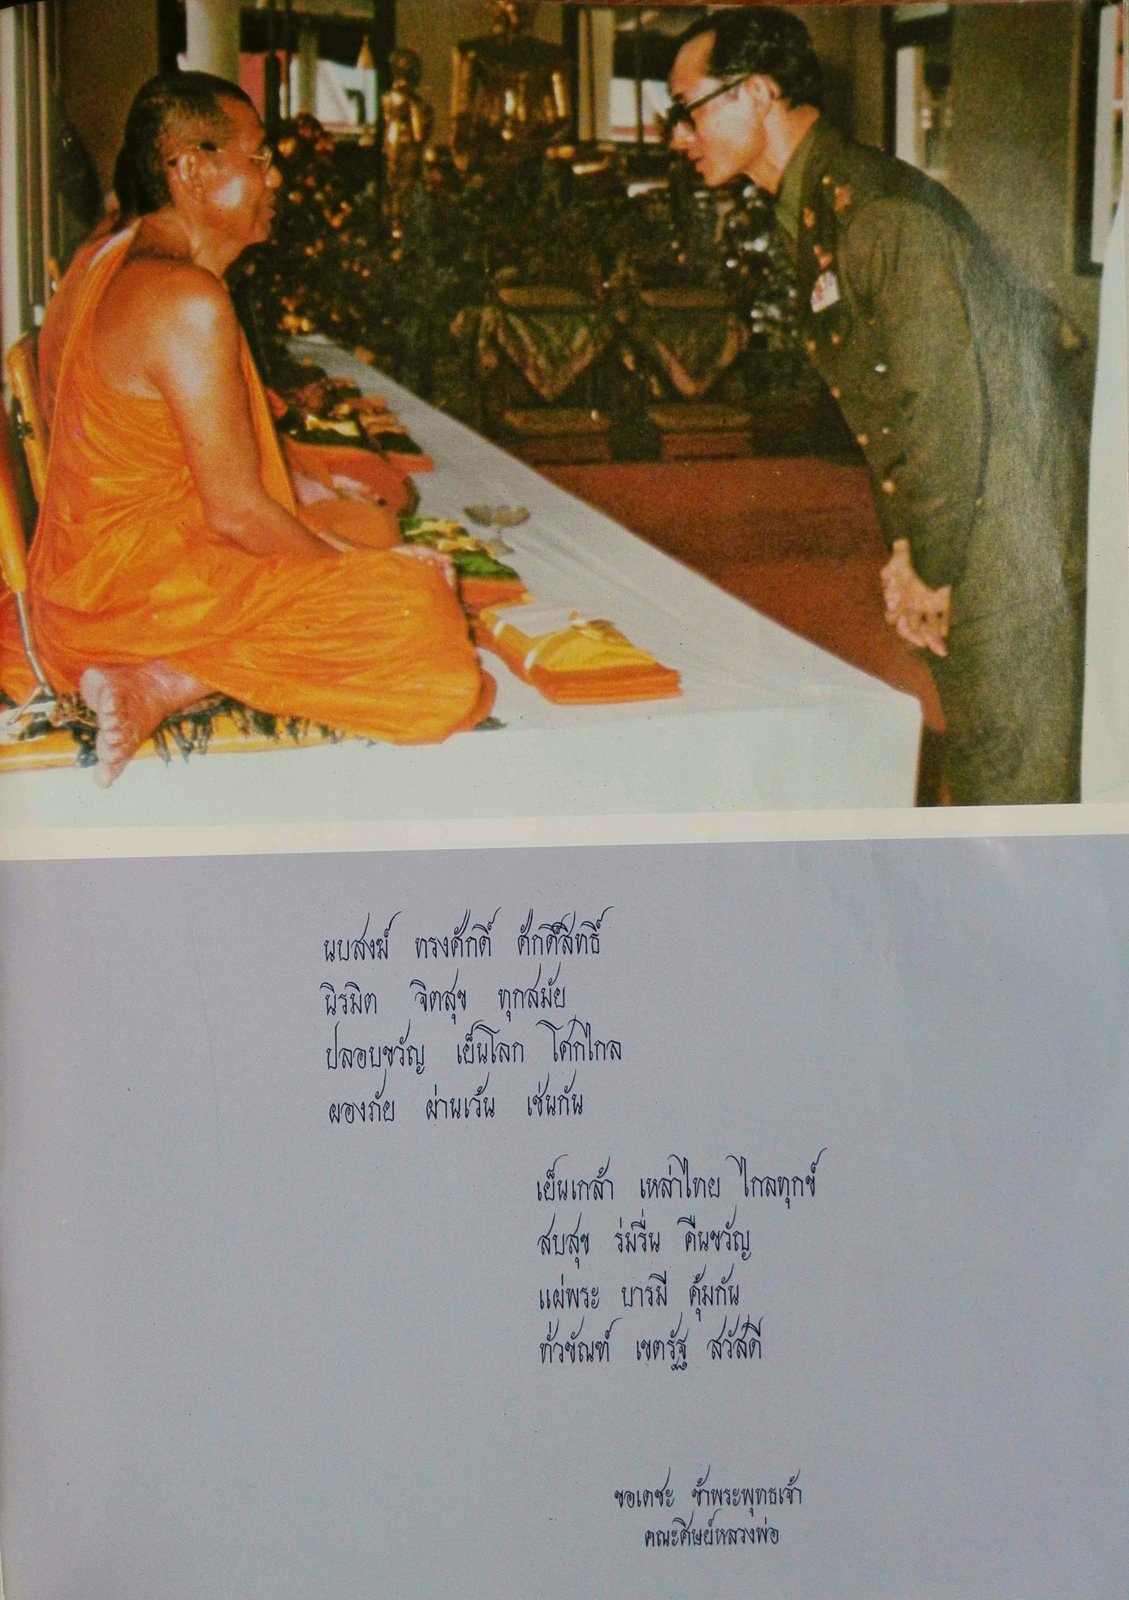 นบสงฆ์ ทรงศักดิ์ ศักดิ์สิทธิ์
นิรมิต จิตสุข ทุกสมัย
ปลอบขวัญ เย็นโลก โศกไกล
ผองภัย ผ่านเว้น เช่นกัน
เย็นเกล้า เหล่าไทย ไกลทุกข์
สบสุข ร่มรื่น คืนขวัญ
แผ่พระ บารมี คุ้มกัน
ทั่วขัณฑ์ เขตรัฐ สวัสดี
ขอเดชะ ข้าพระพุทธเจ้า
คณะศิษย์หลวงพ่อ